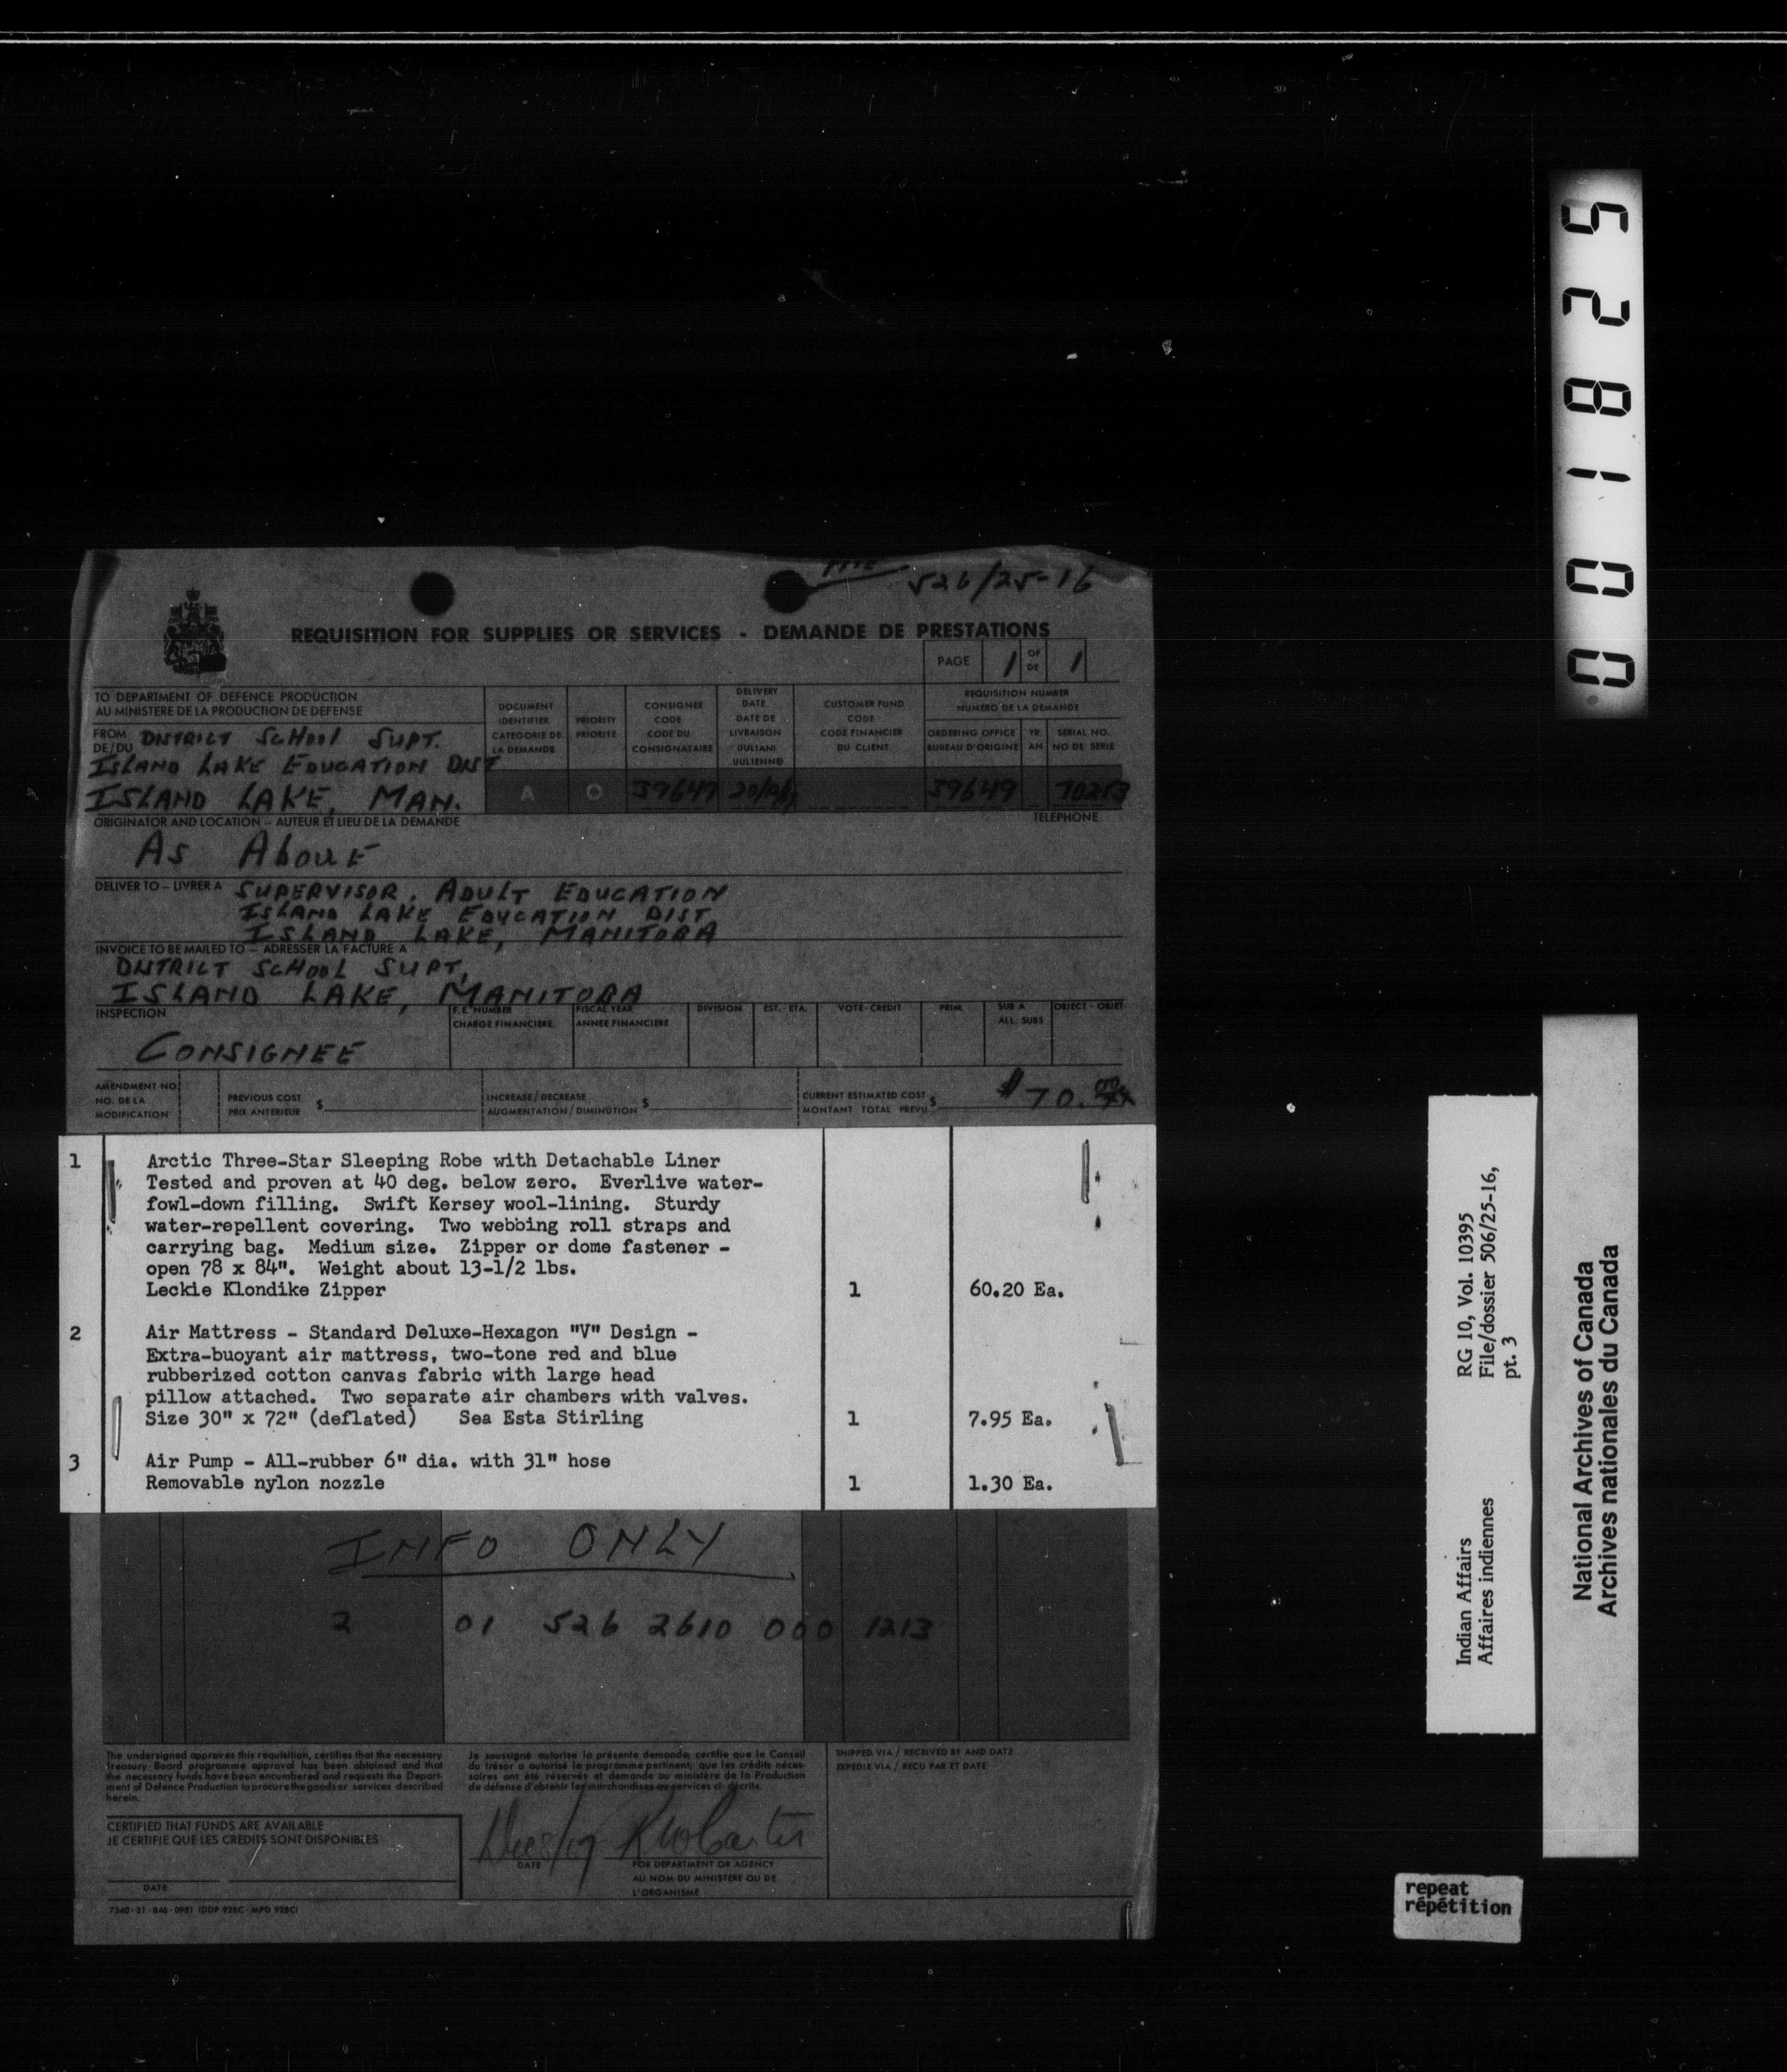 526/25-16
REQUISITION FOR SUPPLIES OR SERVICES - DEMANDE DE PRESTATIONS
PAGE 1 OF DE 1
TO DEPARTMENT OF DEFENCE PRODUCTION
AU MINISTERE DE LA PRODUCTION DE DEFENSE
FROM DE/DU DISTRICT SCHOOL SUPT.
ISLAND LAKE EDUCATION DIST
ISLAND LAKE, MAN.
DOCUMENT IDENTIFIER
CATEGORIE DE LA DEMANDE
A
PRIORITY
PRIORITE
O
CONSIGNEE CODE
CODE DU CONSIGNATAIRE
39649
DELIVERY DATE
DATE DE LIVRAISON
(JULIAN)
JULIENNE)
CUSTOMER FUND CODE
CODE FINANCIER DU CLIENT
REQUISITION NUMBER
NUMERO DE LA DEMANDE
ORDERING OFFICE
BUREAU D'ORIGINE
39649
YR.
AN
SERIAL NO.
NO DE SERIE
70253
ORIGINATOR AND LOCATION - AUTEUR ET LIEU DE LA DEMANDE
TELEPHONE
AS ABOVE
DELIVER TO - LIVRER A SUPERVISOR, ADULT EDUCATION
ISLAND LAKE EDUCATION DIST
ISLAND LAKE, MANITOBA
INVOICE TO BE MAILED TO - ADRESSER LA FACTURE A
DISTRICT SCHOOL SUPT,
ISLAND LAKE, MANITOBA
INSPECTION
CONSIGNEE
F.E. NUMBER
CHARGE FINANCIERE
FISCAL YEAR
ANNEE FINANCIERE
DIVISION
EST. - ETA.
VOTE-CREDIT
PRIM.
SUB A
ALL. SUBS
OBJECT - OBJET
AMENDMENT NO.
NO. DE LA
MODIFICATION
PREVIOUS COST $
PRIX ANTERIEUR
INCREASE/DECREASE $
AUGMENTATION/DIMINUTION
CURRENT ESTIMATED COST $
MONTANT TOTAL PREVU
$70.00
1 Arctic Three-Star Sleeping Robe with Detachable Liner
Tested and proven at 40 deg. below zero. Everlive water-
fowl-down filling. Swift Kersey wool-lining. Sturdy
water-repellent covering. Two webbing roll straps and
carrying bag. Medium size. Zipper or dome fastener -
open 78 x 84". Weight about 13-1/2 lbs.
Leckie Klondike Zipper 1 60.20 Ea.
2 Air Mattress - Standard Deluxe-Hexagon "V" Design -
Extra-buoyant air mattress, two-tone red and blue
rubberized cotton canvas fabric with large head
pillow attached. Two separate air chambers with valves.
Size 30" x 72" (deflated) Sea Esta Stirling 1 7.95 Ea.
3 Air Pump - All-rubber 6" dia. with 31" hose
Removable nylon nozzle 1 1.30 Ea.
INFO ONLY
2 01 526 2610 000 1213
The undersigned approves this requisition, certifies that the necessary
Treasury Board programme approval has been obtained and that
the necessary funds have been encumbered and requests the Depart-
ment of Defence Production to procure the goods or services described
herein.
Je soussigné autorise la présente demande; certifie que le Conseil
du trésor a autorisé le programme pertinent; que les crédits néces-
saires ont été réservés et demande au ministère de la Production
de défense d'obtenir les marchandises ou services ci-décrits.
SHIPPED VIA / RECEIVED BY AND DATE
EXPEDIE VIA / RECU PAR ET DATE
CERTIFIED THAT FUNDS ARE AVAILABLE
JE CERTIFIE QUE LES CREDITS SONT DISPONIBLES
DATE
DATE
FOR DEPARTMENT OR AGENCY
AU NOM DU MINISTERE OU DE
L'ORGANISME
7540-21-846-0981 (DDP 928C - MPD 928C)
001825
RG 10, Vol. 10395
File/dossier 506/25-16,
pt. 3
Indian Affairs
Affaires indiennes
National Archives of Canada
Archives nationales du Canada
repeat
répétition